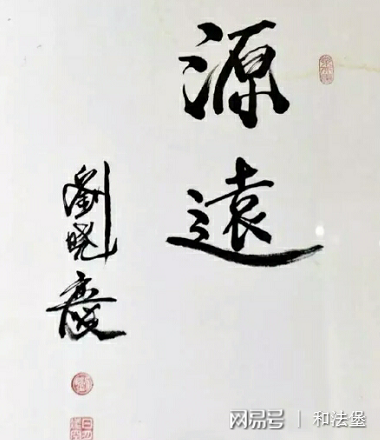 源遠
劉晓慶
网易号 | 和法堡